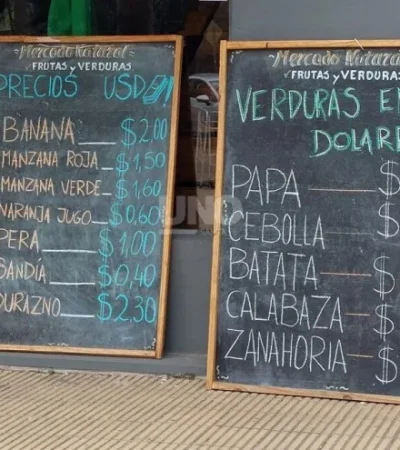 Mercado Natural
FRUTAS y VERDURAS
PRECIOS USD
BANANA $2,00
MANZANA ROJA $1,50
MANZANA VERDE $1,60
NARANJA JUGO $0,60
PERA $1,00
SANDÍA $0,40
DURAZNO $2,30
Mercado Natural
FRUTAS y VERDURAS
VERDURAS EN
DOLARE
PAPA $
CEBOLLA $
BATATA $
CALABAZA $
ZANAHORIA $
UNO